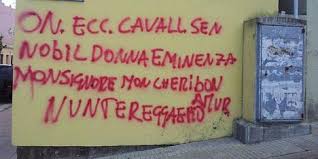 ON. ECC. CAVALL. SEN
NOBIL DONNA EMINENZA
MONSIGNORE MON CHERI BON
NUNTEREGGAEPIÙ